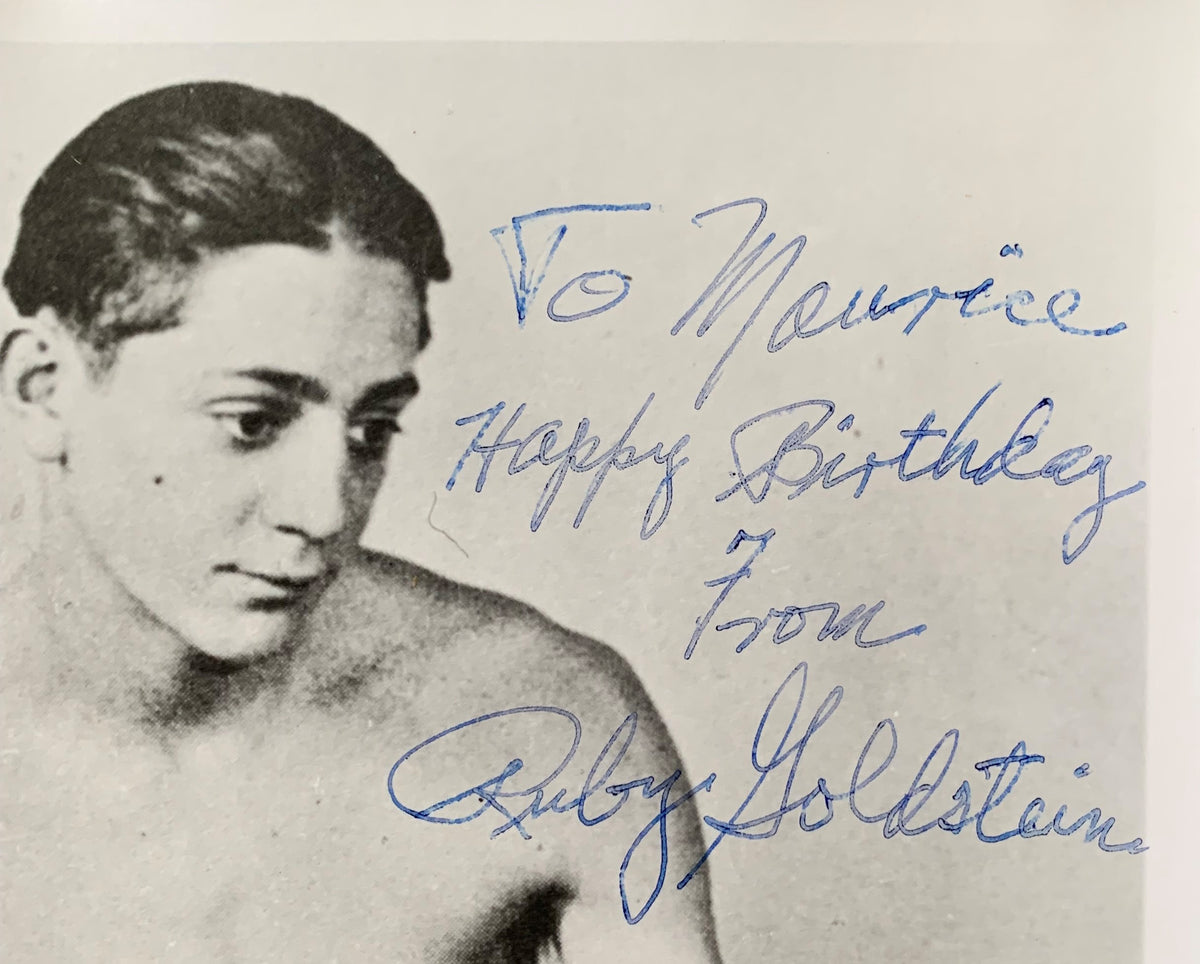 To Maurice
Happy Birthday
From
Ruby Goldstein